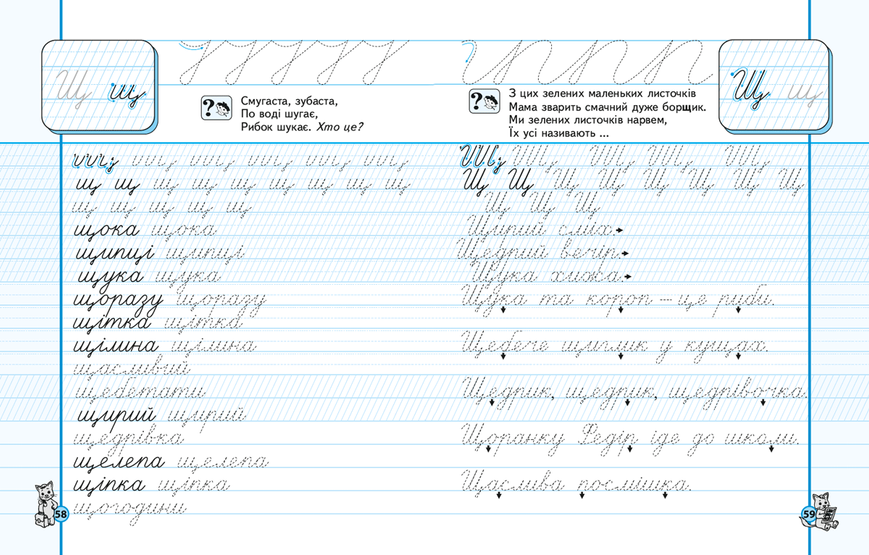 Щ щ
Смугаста, зубаста,
По воді шугає,
Рибок шукає. Хто це?
щ щ щ щ щ щ щ щ щ
щ щ щ щ щ
щока щока
щипці щипці
щука щука
щоразу щоразу
щітка щітка
щілина щілина
щасливий
щебетати
щирий щирий
щедрівка
щелепа щелепа
щіпка щіпка
щогодини
58
З цих зелених маленьких листочків
Мама зварить смачний дуже борщик.
Ми зелених листочків нарвем,
Їх усі називають ...
Щ щ
Щ Щ Щ Щ Щ Щ Щ Щ
Щ Щ Щ
Щирий сміх.
Щедрий вечір.
Щука хижа.
Щука та короп – це риби.
Щебече щиглик у кущах.
Щедрик, щедрик, щедрівочка.
Щоранку Федір іде до школи.
Щаслива посмішка.
59